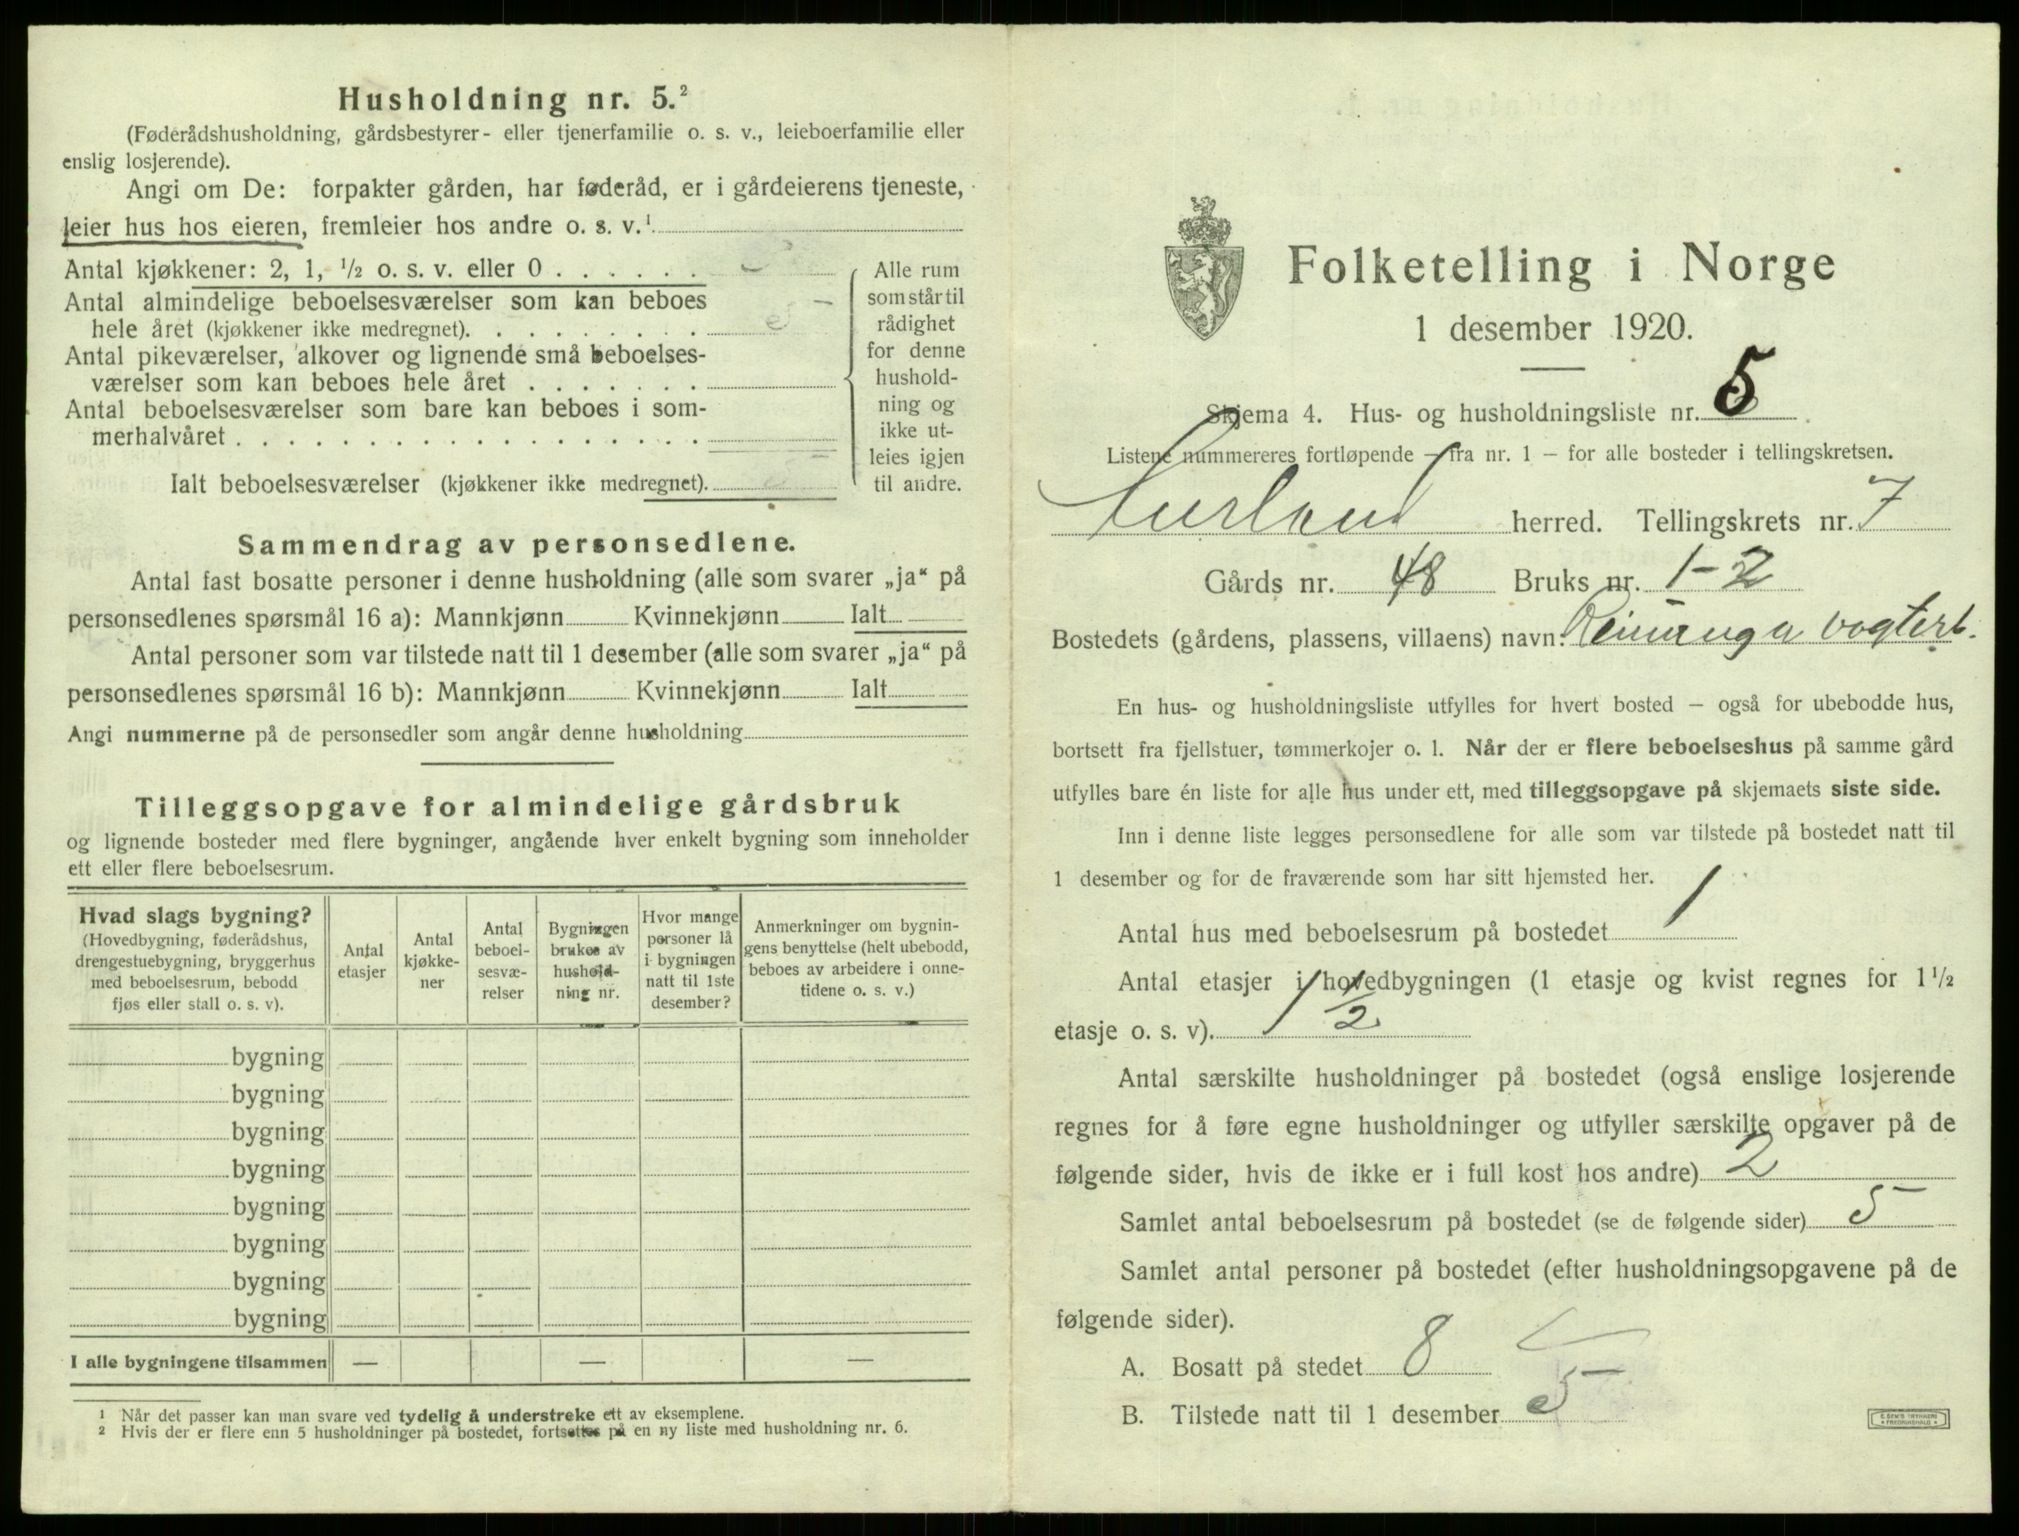 Husholdning nr. 5.²
(Føderådshusholdning, gårdsbestyrer- eller tjenerfamilie o. s. v., leieboerfamilie eller
enslig losjerende).
Angi om De: forpakter gården, har føderåd, er i gårdeierens tjeneste,
leier hus hos eieren, fremleier hos andre o. s. v.¹
Antal kjøkkener: 2, 1, ½ o. s. v. eller 0 . . . . . .
Antal almindelige beboelsesværelser som kan beboes
hele året (kjøkkener ikke medregnet). . . . . . . . .
Antal pikeværelser, alkover og lignende små beboelses-
værelser som kan beboes hele året . . . . . . .
Antal beboelsesværelser som bare kan beboes i som-
merhalvåret . . . . . . . . . . . . . . . . . .
Ialt beboelsesværelser (kjøkkener ikke medregnet).
Alle rum
som står til
rådighet
for denne
hushold-
ning og
ikke ut-
leies igjen
til andre.
Sammendrag av personsedlene.
Antal fast bosatte personer i denne husholdning (alle som svarer „ja“ på
personsedlenes spørsmål 16 a): Mannkjønn Kvinnekjønn Ialt
Antal personer som var tilstede natt til 1 desember (alle som svarer „ja“ på
personsedlenes spørsmål 16 b): Mannkjønn Kvinnekjønn Ialt
Angi nummerne på de personsedler som angår denne husholdning
Tilleggsopgave for almindelige gårdsbruk
og lignende bosteder med flere bygninger, angående hver enkelt bygning som inneholder
ett eller flere beboelsesrum.
Hvad slags bygning?
(Hovedbygning, føderådshus,
drengestuebygning, bryggerhus
med beboelsesrum, bebodd
fjøs eller stall o. s. v).
Antal
etasjer
Antal
kjøkke-
ner
Antal
beboel-
sesvæ-
relser
Bygningen
brukes av
hushold-
ning nr.
Hvor mange
personer lå
i bygningen
natt til 1ste
desember?
Anmerkninger om bygnin-
gens benyttelse (helt ubebodd,
beboes av arbeidere i onne-
tidene o. s. v.)
bygning
bygning
bygning
bygning
bygning
bygning
bygning
bygning
I alle bygningene tilsammen — — —
¹ Når det passer kan man svare ved tydelig å understreke ett av eksemplene.
² Hvis der er flere enn 5 husholdninger på bostedet, fortsettes på en ny liste med husholdning nr. 6.
Folketelling i Norge
1 desember 1920.
Skjema 4. Hus- og husholdningsliste nr. 5
Listene nummereres fortløpende — fra nr. 1 — for alle bosteder i tellingskretsen.
Aurland herred. Tellingskrets nr. 7
Gårds nr. 48 Bruks nr. 1-2
Bostedets (gårdens, plassens, villaens) navn: Reinunga vogterb.
En hus- og husholdningsliste utfylles for hvert bosted — også for ubebodde hus,
bortsett fra fjellstuer, tømmerkojer o. l. Når der er flere beboelseshus på samme gård
utfylles bare én liste for alle hus under ett, med tilleggsopgave på skjemaets siste side.
Inn i denne liste legges personsedlene for alle som var tilstede på bostedet natt til
1 desember og for de fraværende som har sitt hjemsted her.
Antal hus med beboelsesrum på bostedet 1
Antal etasjer i hovedbygningen (1 etasje og kvist regnes for 1 ½
etasje o. s. v). 1 ½
Antal særskilte husholdninger på bostedet (også enslige losjerende
regnes for å føre egne husholdninger og utfyller særskilte opgaver på de
følgende sider, hvis de ikke er i full kost hos andre) 2
Samlet antal beboelsesrum på bostedet (se de følgende sider) 5
Samlet antal personer på bostedet (efter husholdningsopgavene på de
følgende sider).
A. Bosatt på stedet 8
B. Tilstede natt til 1 desember 5